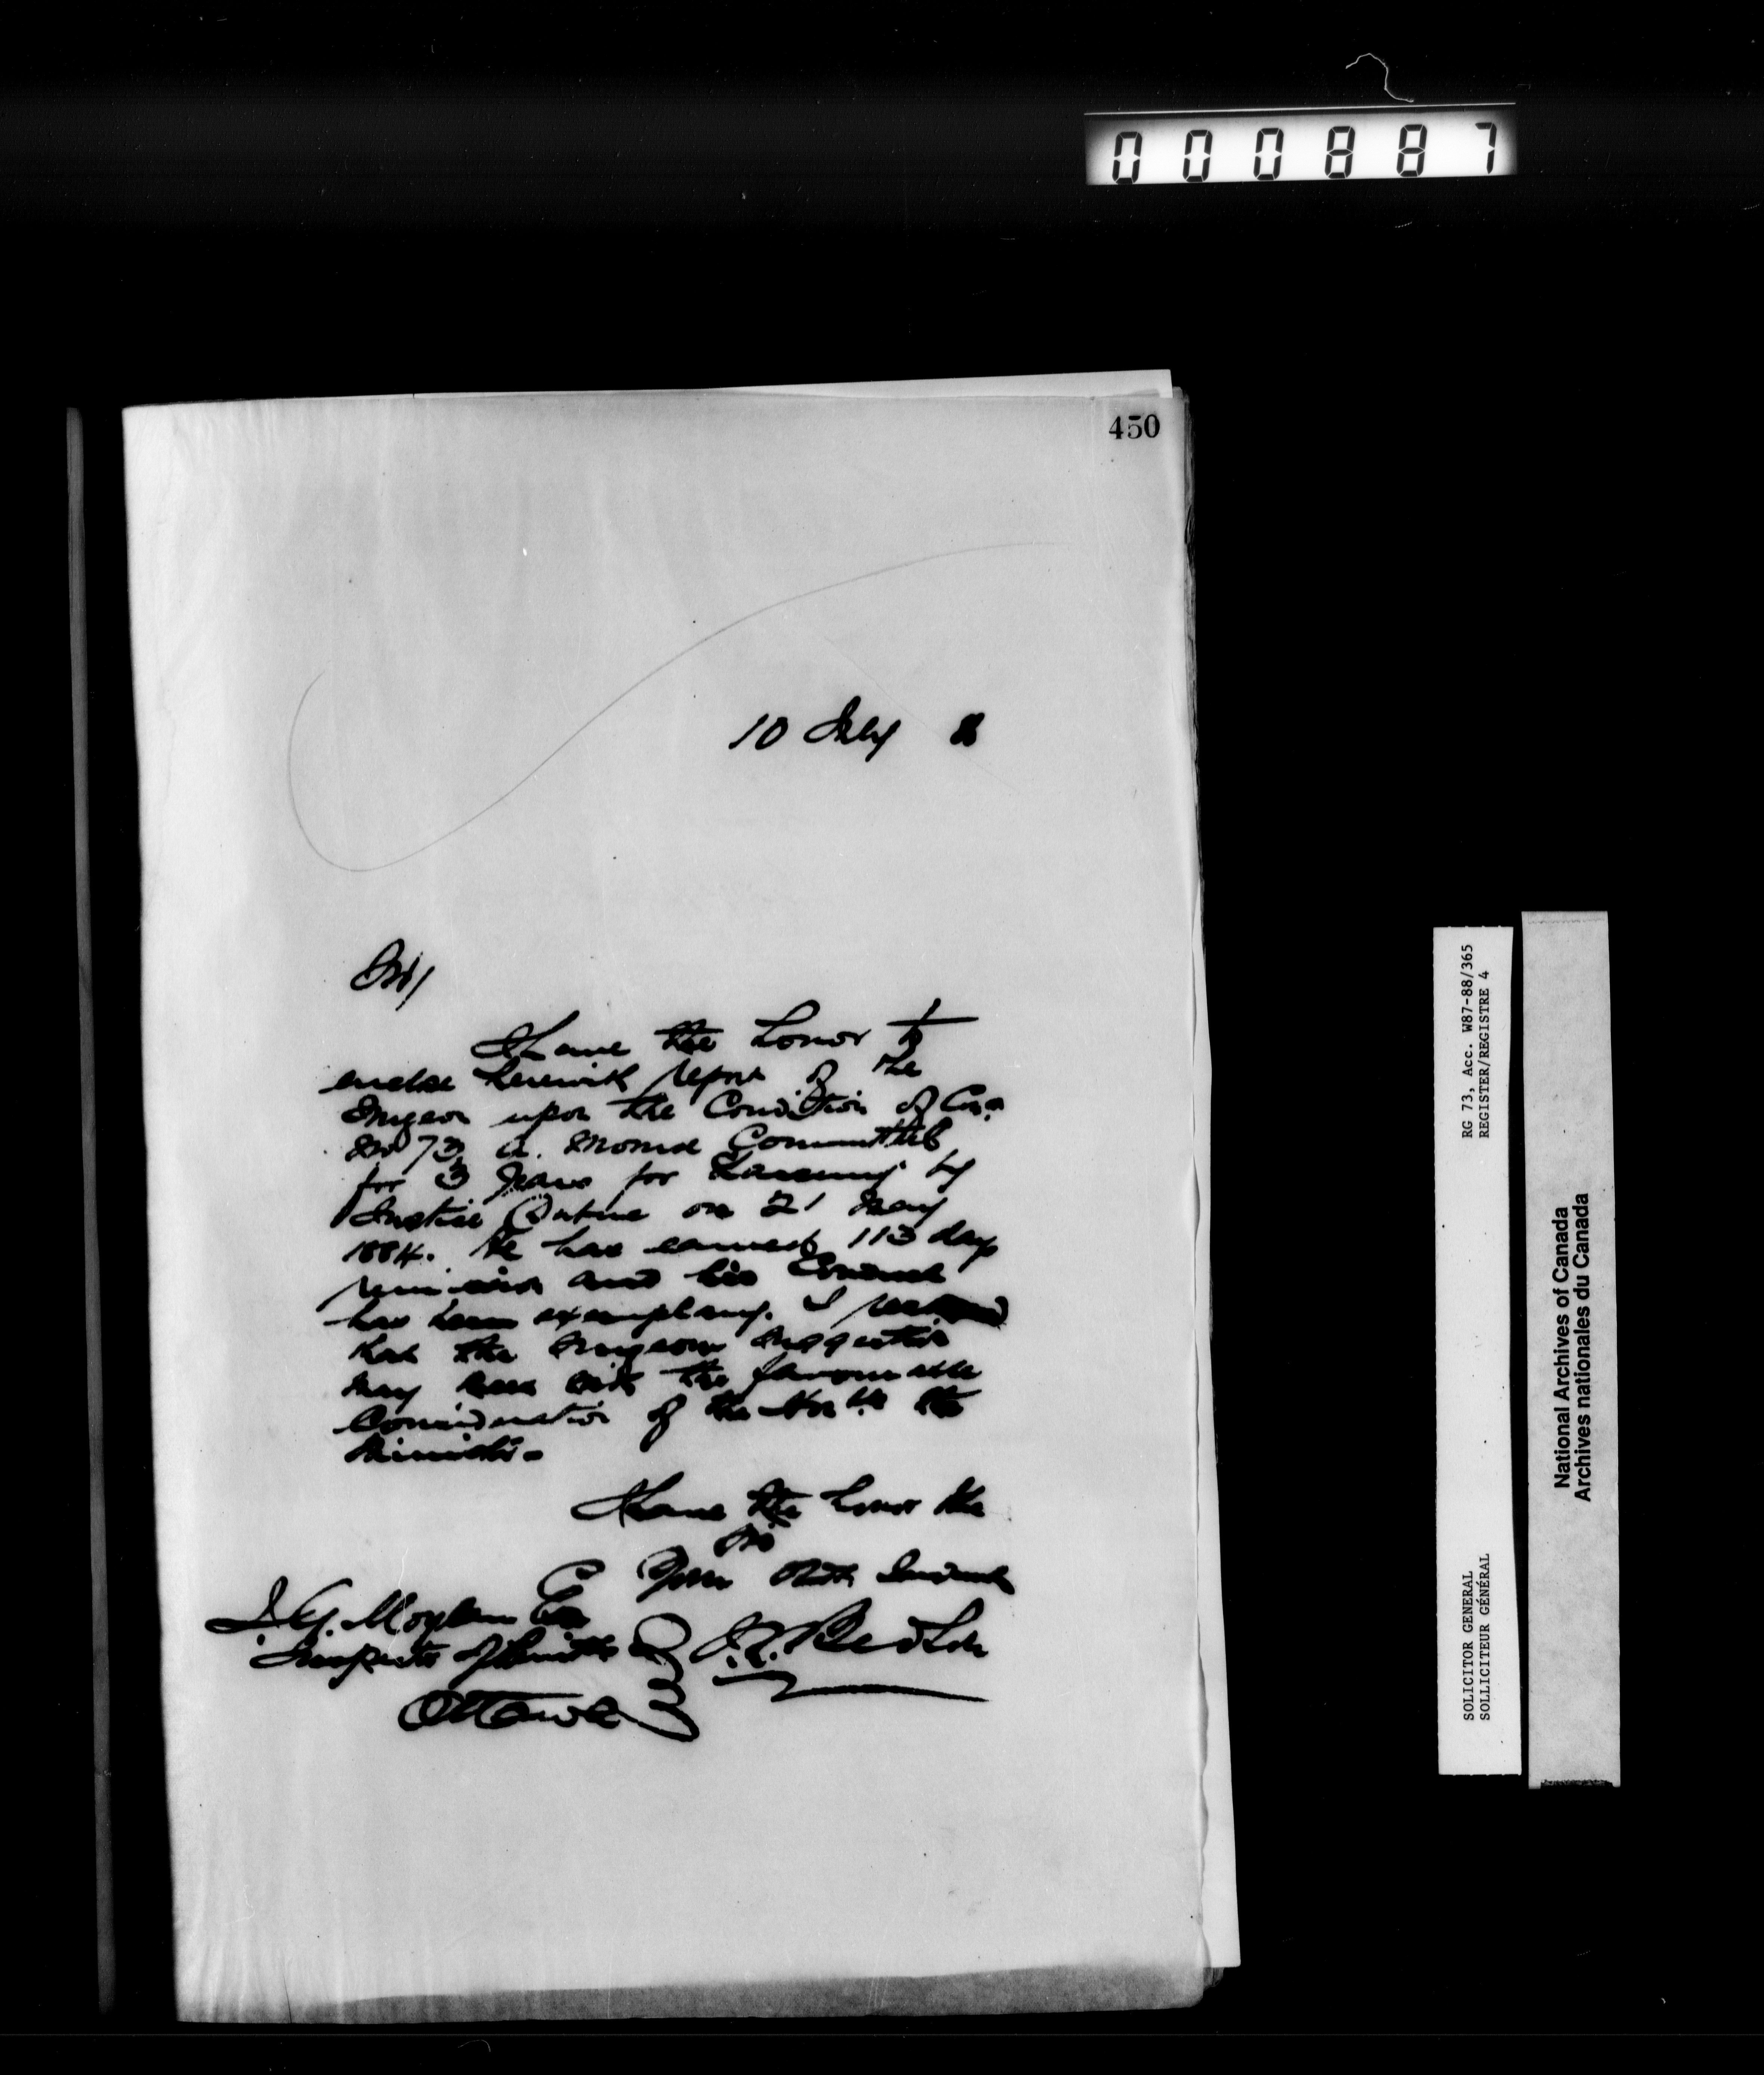 000887
450
10 July 8
Sir/
I have the honor to
enclose herewith report of the
Surgeon upon the Condition of Con.
No 73 a. Committed
for 3 Years for Larceny by
Justice on 21 May
1884. He has earned 113 days
remission and his Conduct
has been exemplary. I
that the Surgeons suggestion
may meet with the favourable
Consideration of the Honble the
Minister-
I have the honor to be
Sir
Your Obdt Servant
J. G. Moylan Esq
Inspector of Penits
Ottawa
RG 73, Acc. W87-88/365
REGISTER/REGISTRE 4
SOLICITOR GENERAL
SOLLICITEUR GÉNÉRAL
National Archives of Canada
Archives nationales du Canada